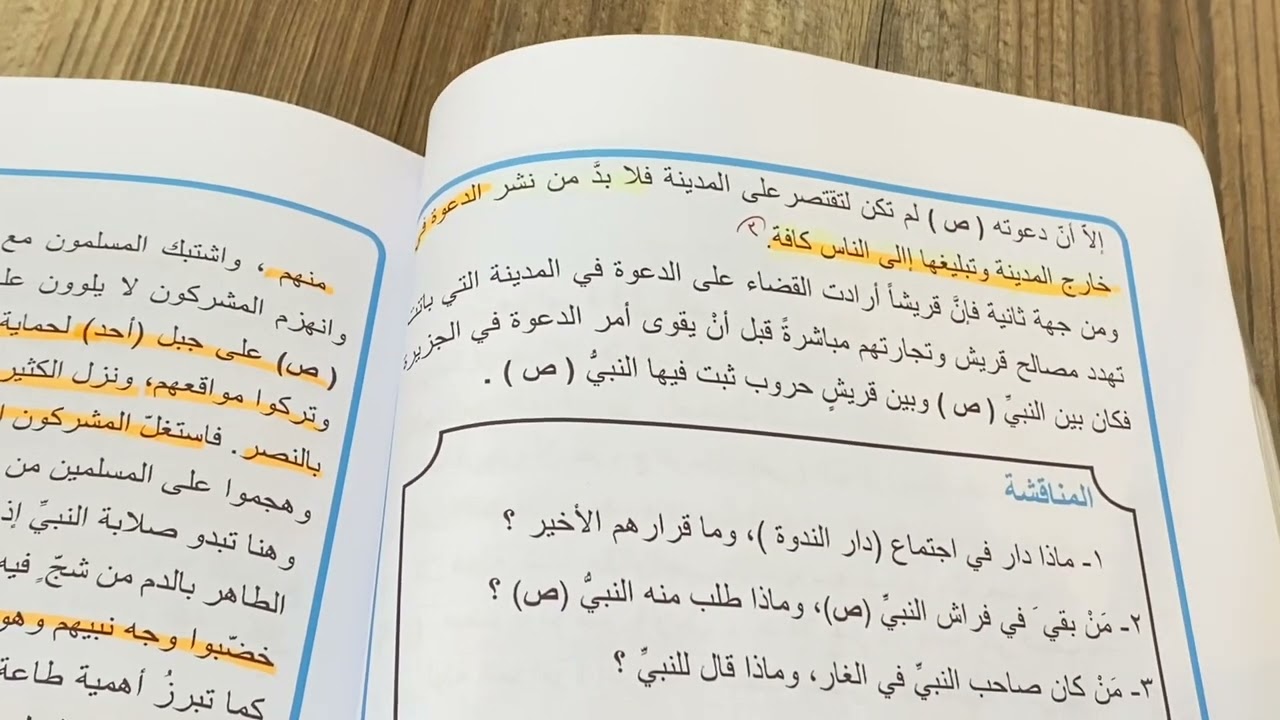 إلاّ أنّ دعوته ( ص ) لم تكن لتقتصر على المدينة فلا بدَّ من نشر الدعوة في
خارج المدينة وتبليغها إالى الناس كافة. ٣
ومن جهة ثانية فإنَّ قريشاً أرادت القضاء على الدعوة في المدينة التي باتت
تهدد مصالح قريش وتجارتهم مباشرةً قبل أنْ يقوى أمر الدعوة في الجزيرة
فكان بين النبيِّ ( ص ) وبين قريشٍ حروب ثبت فيها النبيُّ ( ص ) .
المناقشة
١- ماذا دار في اجتماع (دار الندوة )، وما قرار هم الأخير ؟
٢- مَنْ بقيَ في فراش النبيِّ (ص)، وماذا طلب منه النبيُّ (ص) ؟
٣- مَنْ كان صاحب النبيِّ في الغار، وماذا قال للنبيِّ ؟
منهم ، واشتبك المسلمون مع
وانهزم المشركون لا يلوون
( ص) على جبل (أحد) لحماية
وتركوا مواقعهم، ونزل الكثير
بالنصر . فاستغلّ المشركون
وهجموا على المسلمين من
وهنا تبدو صلابة النبيِّ إذ
الطاهر بالدم من شجّ ٍ فيه
خضّبوا وجه نبيهم وهو
كما تبرزُ أهمية طاعة